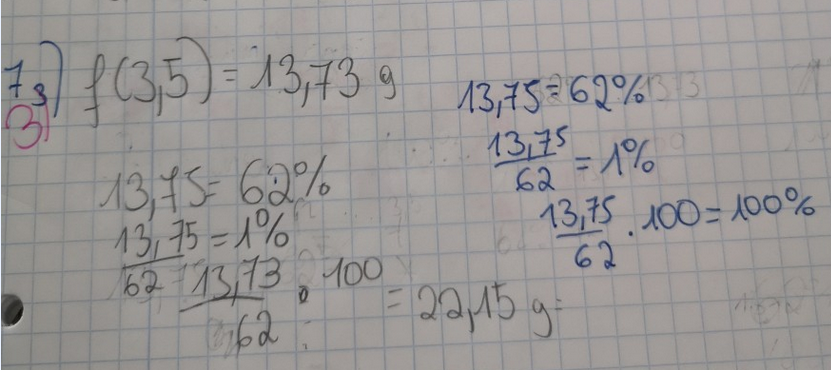 7₃) f(3,5) = 13,73 g
3)
13,75 = 62%
13,75/62 = 1%
13,73/62 · 100 = 22,15 g
13,75 = 62%
13,75/62 = 1%
13,75/62 · 100 = 100%